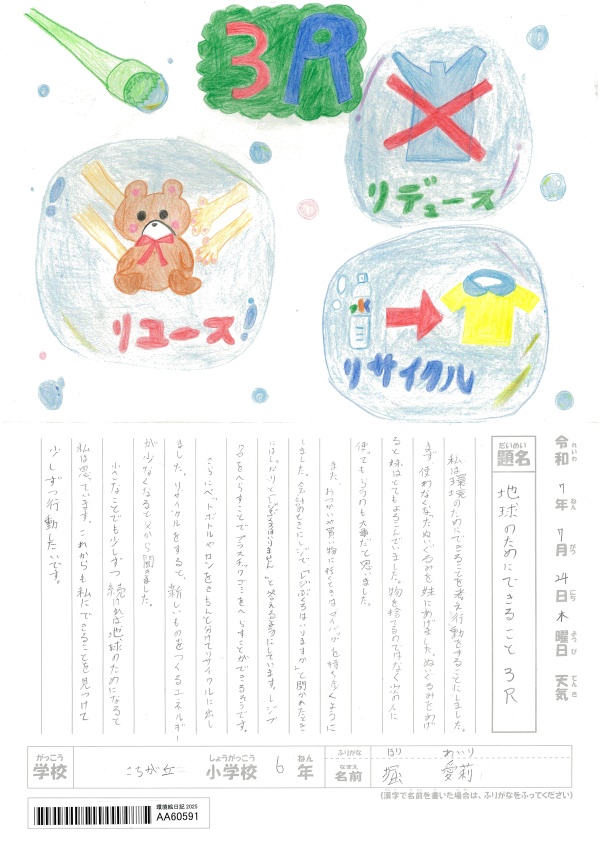 3R
リデュース
リユース!
リサイクル
令和7年7月24日木曜日 天気
れいわ ねん がつ にち ようび てんき
だいめい
題名
地球のためにできること 3R
私は環境のためにできることを考え行動をすることにしました。
まず使わなくなったぬいぐるみを妹にあげました。ぬいぐるみをあげ
ると妹はとてもよろこんでいました。物を捨てるのではなく次の人に
使ってもらうのも大事だと思いました。
また、おつかいや買い物に行くときはマイバッグを持ち歩くように
しました。会計のときにレジで「レジぶくろはいりますか」と聞かれたとき
にはしっかりと「レジぶくろはいりません」と答えるようにしています。レジブ
クロをへらすことでプラスチックゴミをへらすことができるそうです。
さらにペットボトルやカンをきちんと分けてリサイクルに出し
ました。リサイクルをすると、新しいものをつくるエネルギー
が少なくなると父から聞きました。
小さなことでも少しずつ続ければ地球のためになると
私は思っています。これからも私にできることを見つけて
少しずつ行動したいです。
がっこう
学校
こちが丘
しょうがっこう
小学校
6
ねん
年
ふりがな
ほり あいり
なまえ
名前
堀 愛莉
(漢字で名前を書いた場合は、ふりがなをふってください)
環境絵日記2025
AA60591